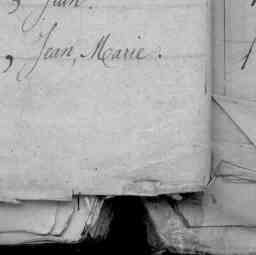 , Jean.
, Jean, Marie.